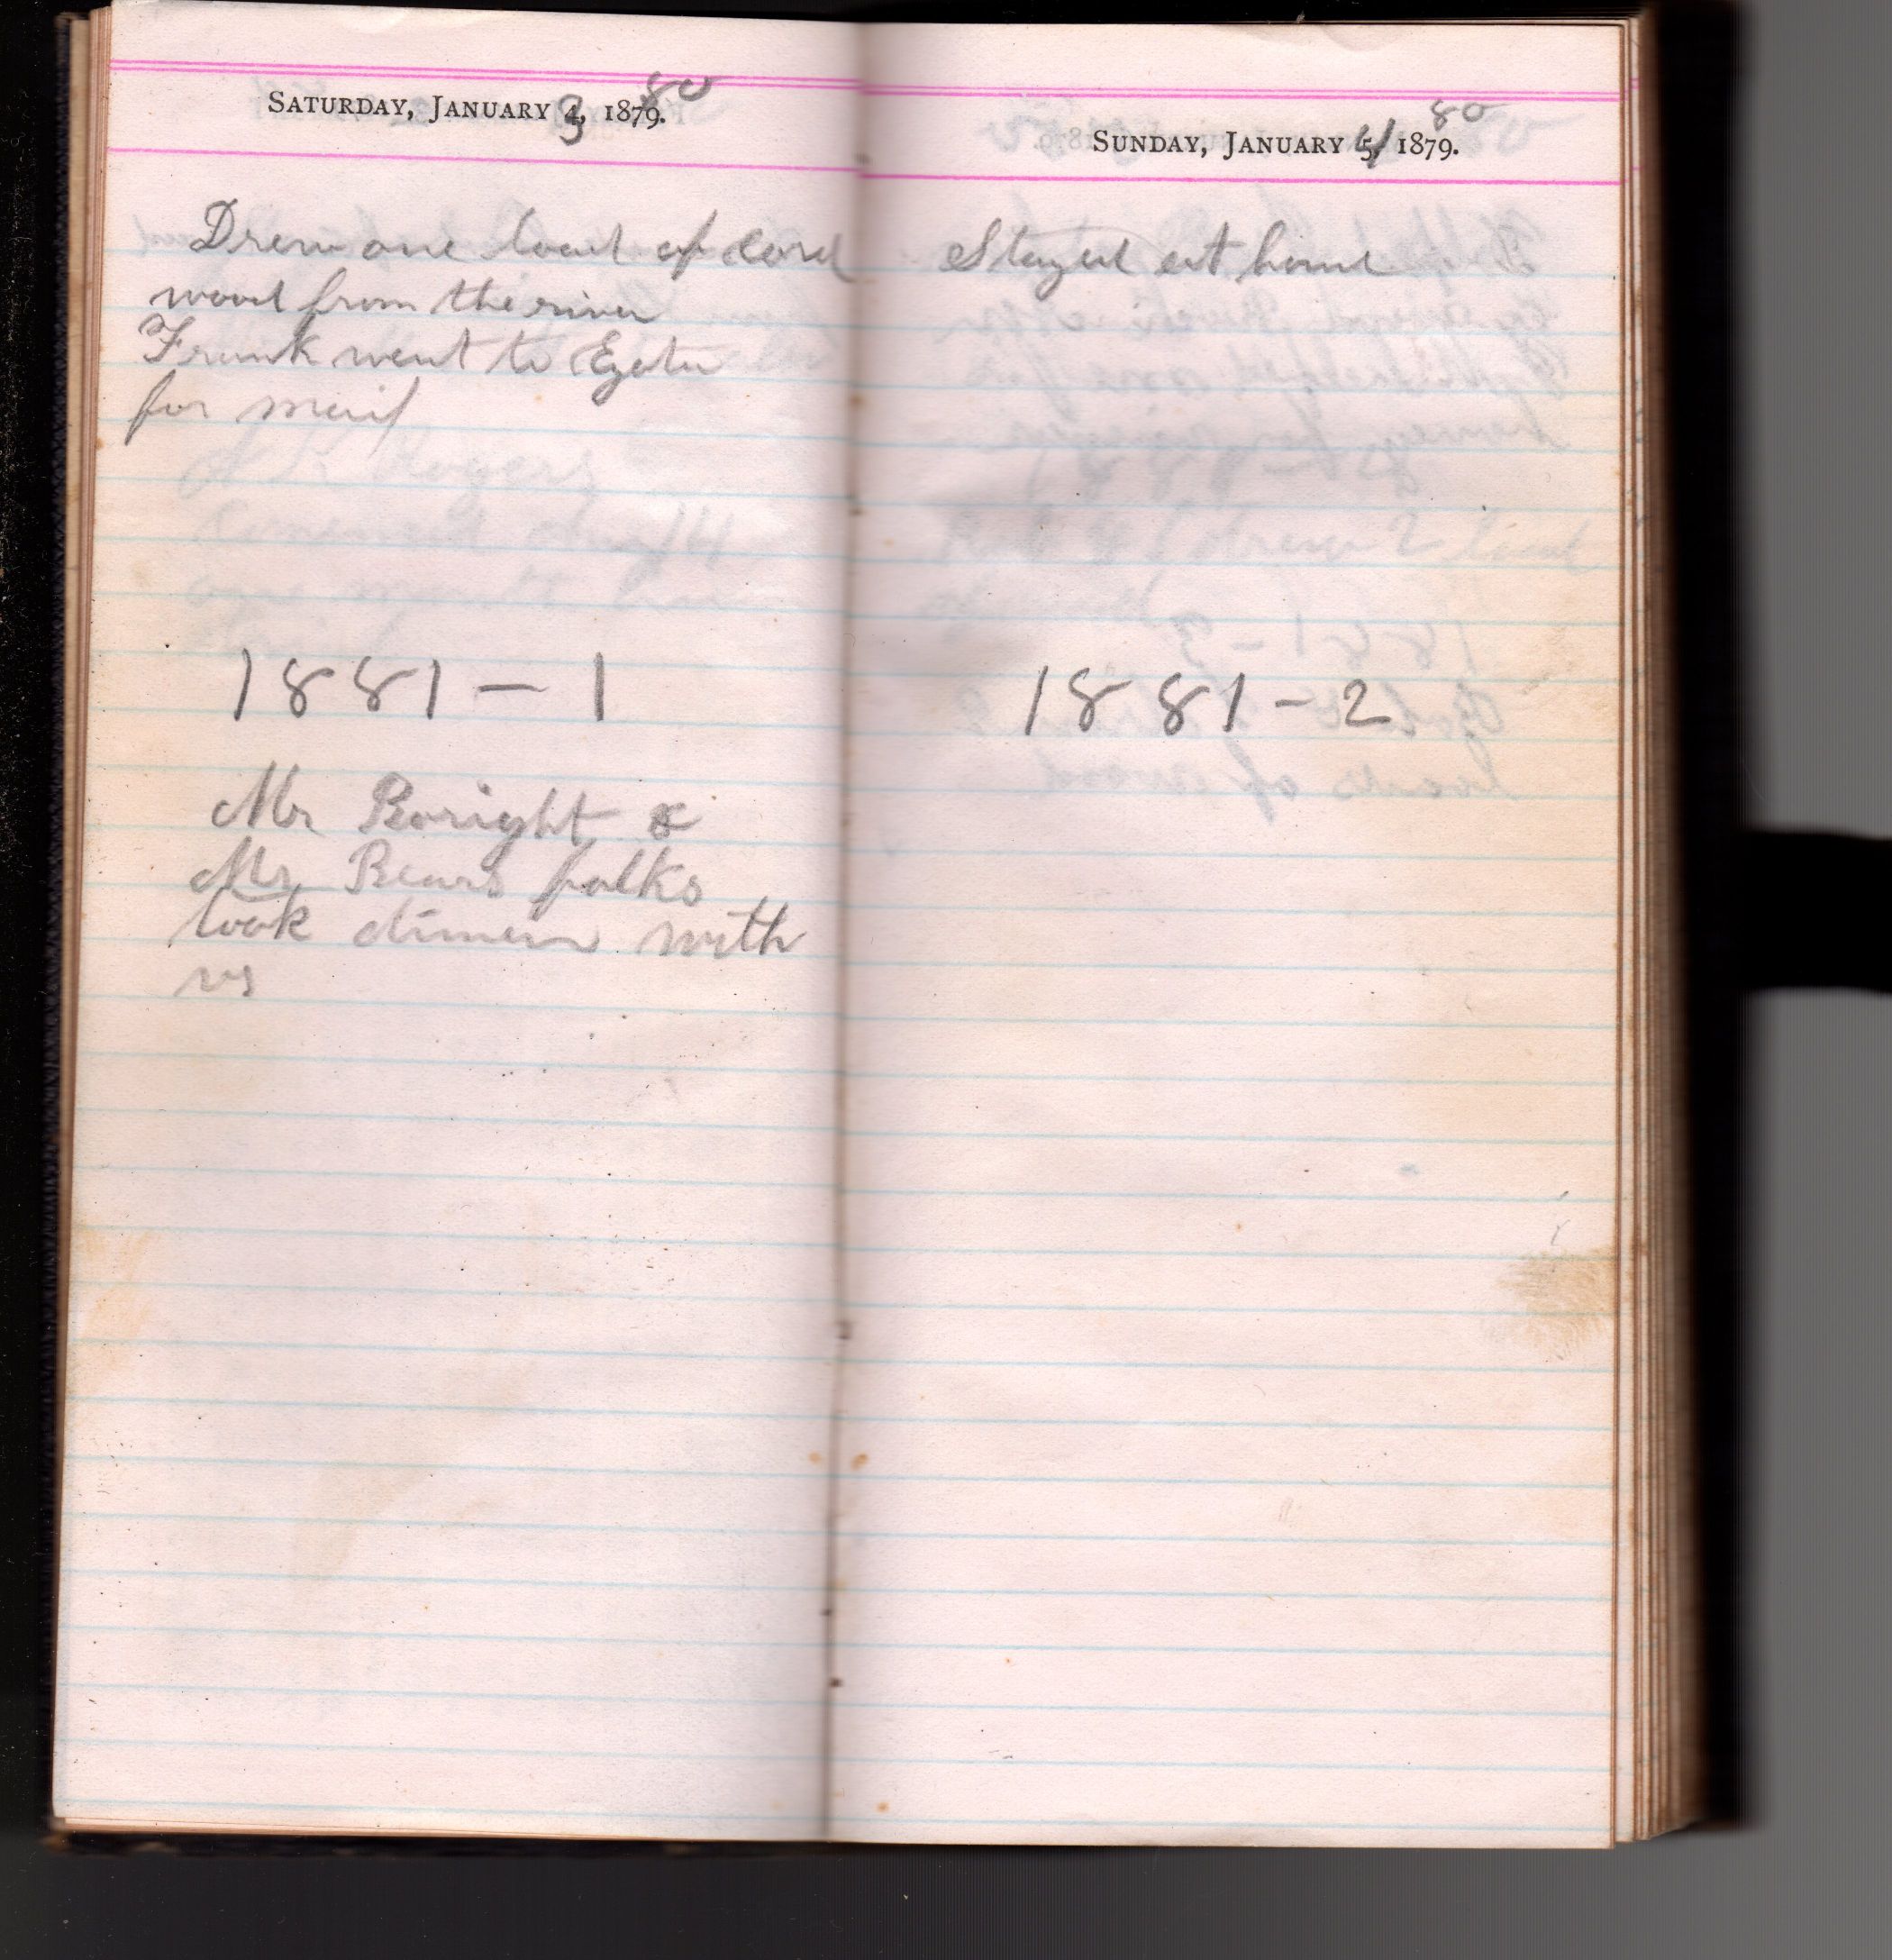 SATURDAY, JANUARY 3, 1879.
80
Drew one load of cord
wood from the river
Frank went to Eyota
for mail
A K Rogers
commenced Aug 14
one month
1881 – 1
Mr Boright &
Mr Bears folks
took dinner with
us
SUNDAY, JANUARY 4, 1879.
80
Stayed at home
1881 – 2